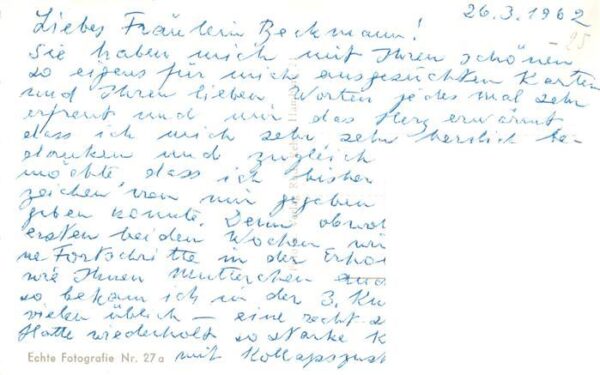 26.3.1962
25
Liebes Fräulein Beckmann!
Sie haben mich mit Ihren schönen
so eigens für mich ausgesuchten Karten
und Ihren lieben Worten jedes mal sehr
erfreut und mir das Herz erwärmt
dass ich mich sehr sehr herzlich be-
danken und zugleich
möchte, dass ich bisher
zeichen von mir gegeben
geben konnte. Denn obwo
ersten beiden Wochen
ne Fortschritte in der Erho
wie Ihnen Mutterchen
so bekam ich in der 3. Ku
vielen üblich – eine recht
Hatte wiederholt so starke K
mit Kollapszust
Echte Fotografie Nr. 27a